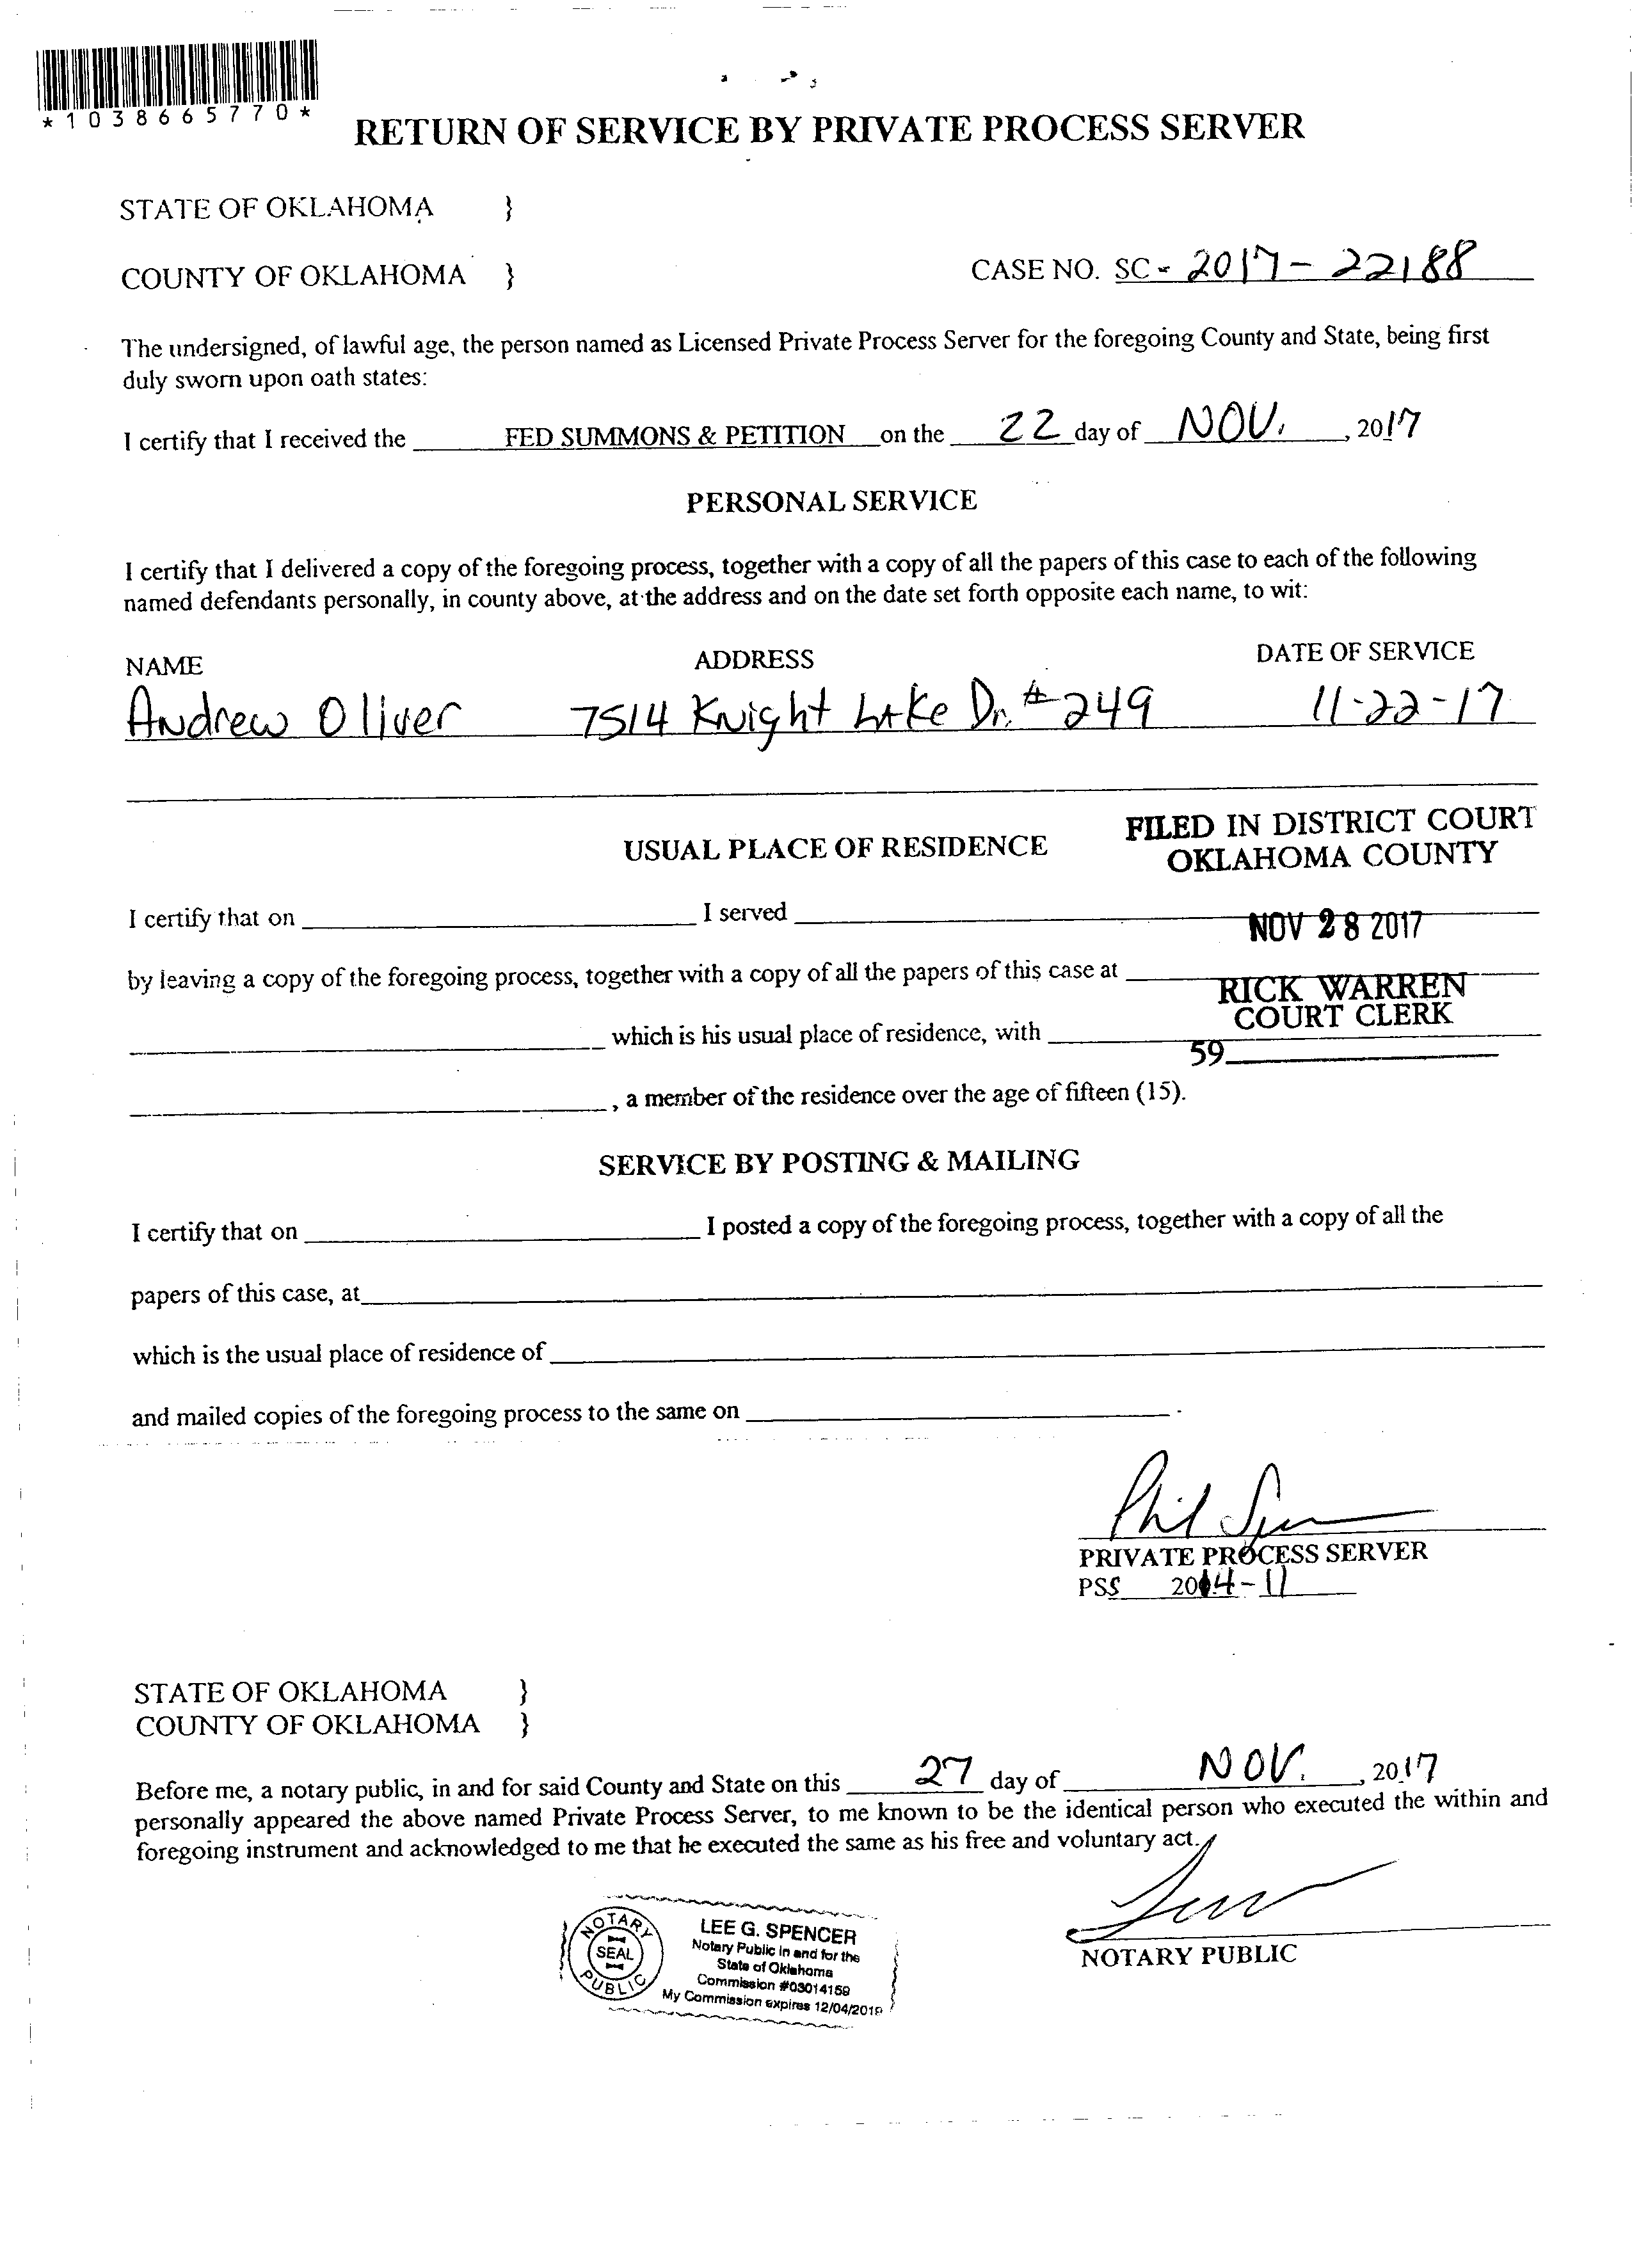 *1038665770*
RETURN OF SERVICE BY PRIVATE PROCESS SERVER
STATE OF OKLAHOMA }
COUNTY OF OKLAHOMA } CASE NO. SC - 2017-22188
The undersigned, of lawful age, the person named as Licensed Private Process Server for the foregoing County and State, being first
duly sworn upon oath states:
I certify that I received the FED SUMMONS & PETITION on the 22 day of NOV. , 2017
PERSONAL SERVICE
I certify that I delivered a copy of the foregoing process, together with a copy of all the papers of this case to each of the following
named defendants personally, in county above, at the address and on the date set forth opposite each name, to wit:
NAME ADDRESS DATE OF SERVICE
Andrew Oliver 7514 Knight Lake Dr. #249 11-22-17
FILED IN DISTRICT COURT
USUAL PLACE OF RESIDENCE OKLAHOMA COUNTY
I certify that on I served NOV 28 2017
by leaving a copy of the foregoing process, together with a copy of all the papers of this case at
RICK WARREN
COURT CLERK
which is his usual place of residence, with
59
, a member of the residence over the age of fifteen (15).
SERVICE BY POSTING & MAILING
I certify that on I posted a copy of the foregoing process, together with a copy of all the
papers of this case, at
which is the usual place of residence of
and mailed copies of the foregoing process to the same on .
Phil
PRIVATE PROCESS SERVER
PSS 2014-11
STATE OF OKLAHOMA }
COUNTY OF OKLAHOMA }
Before me, a notary public, in and for said County and State on this 27 day of NOV. , 2017
personally appeared the above named Private Process Server, to me known to be the identical person who executed the within and
foregoing instrument and acknowledged to me that he executed the same as his free and voluntary act.
NOTARY PUBLIC
NOTARY
SEAL
PUBLIC
LEE G. SPENCER
Notary Public in and for the
State of Oklahoma
Commission #03014159
My Commission expires